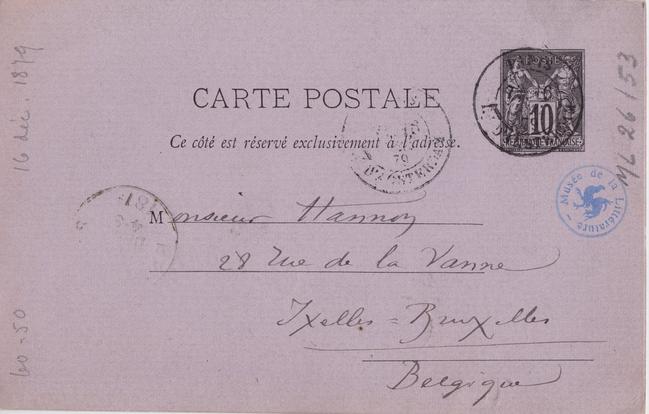 CARTE POSTALE
Ce côté est réservé exclusivement à l'adresse.
Monsieur Hannon
28 Rue de la Vanne
Ixelles = Bruxelles
Belgique
10
RÉPUBLIQUE FRANÇAISE
PARIS
79
D'AMSTERDAM
Musée de la Littérature
ML 26/53
16 déc. 1879
60-50